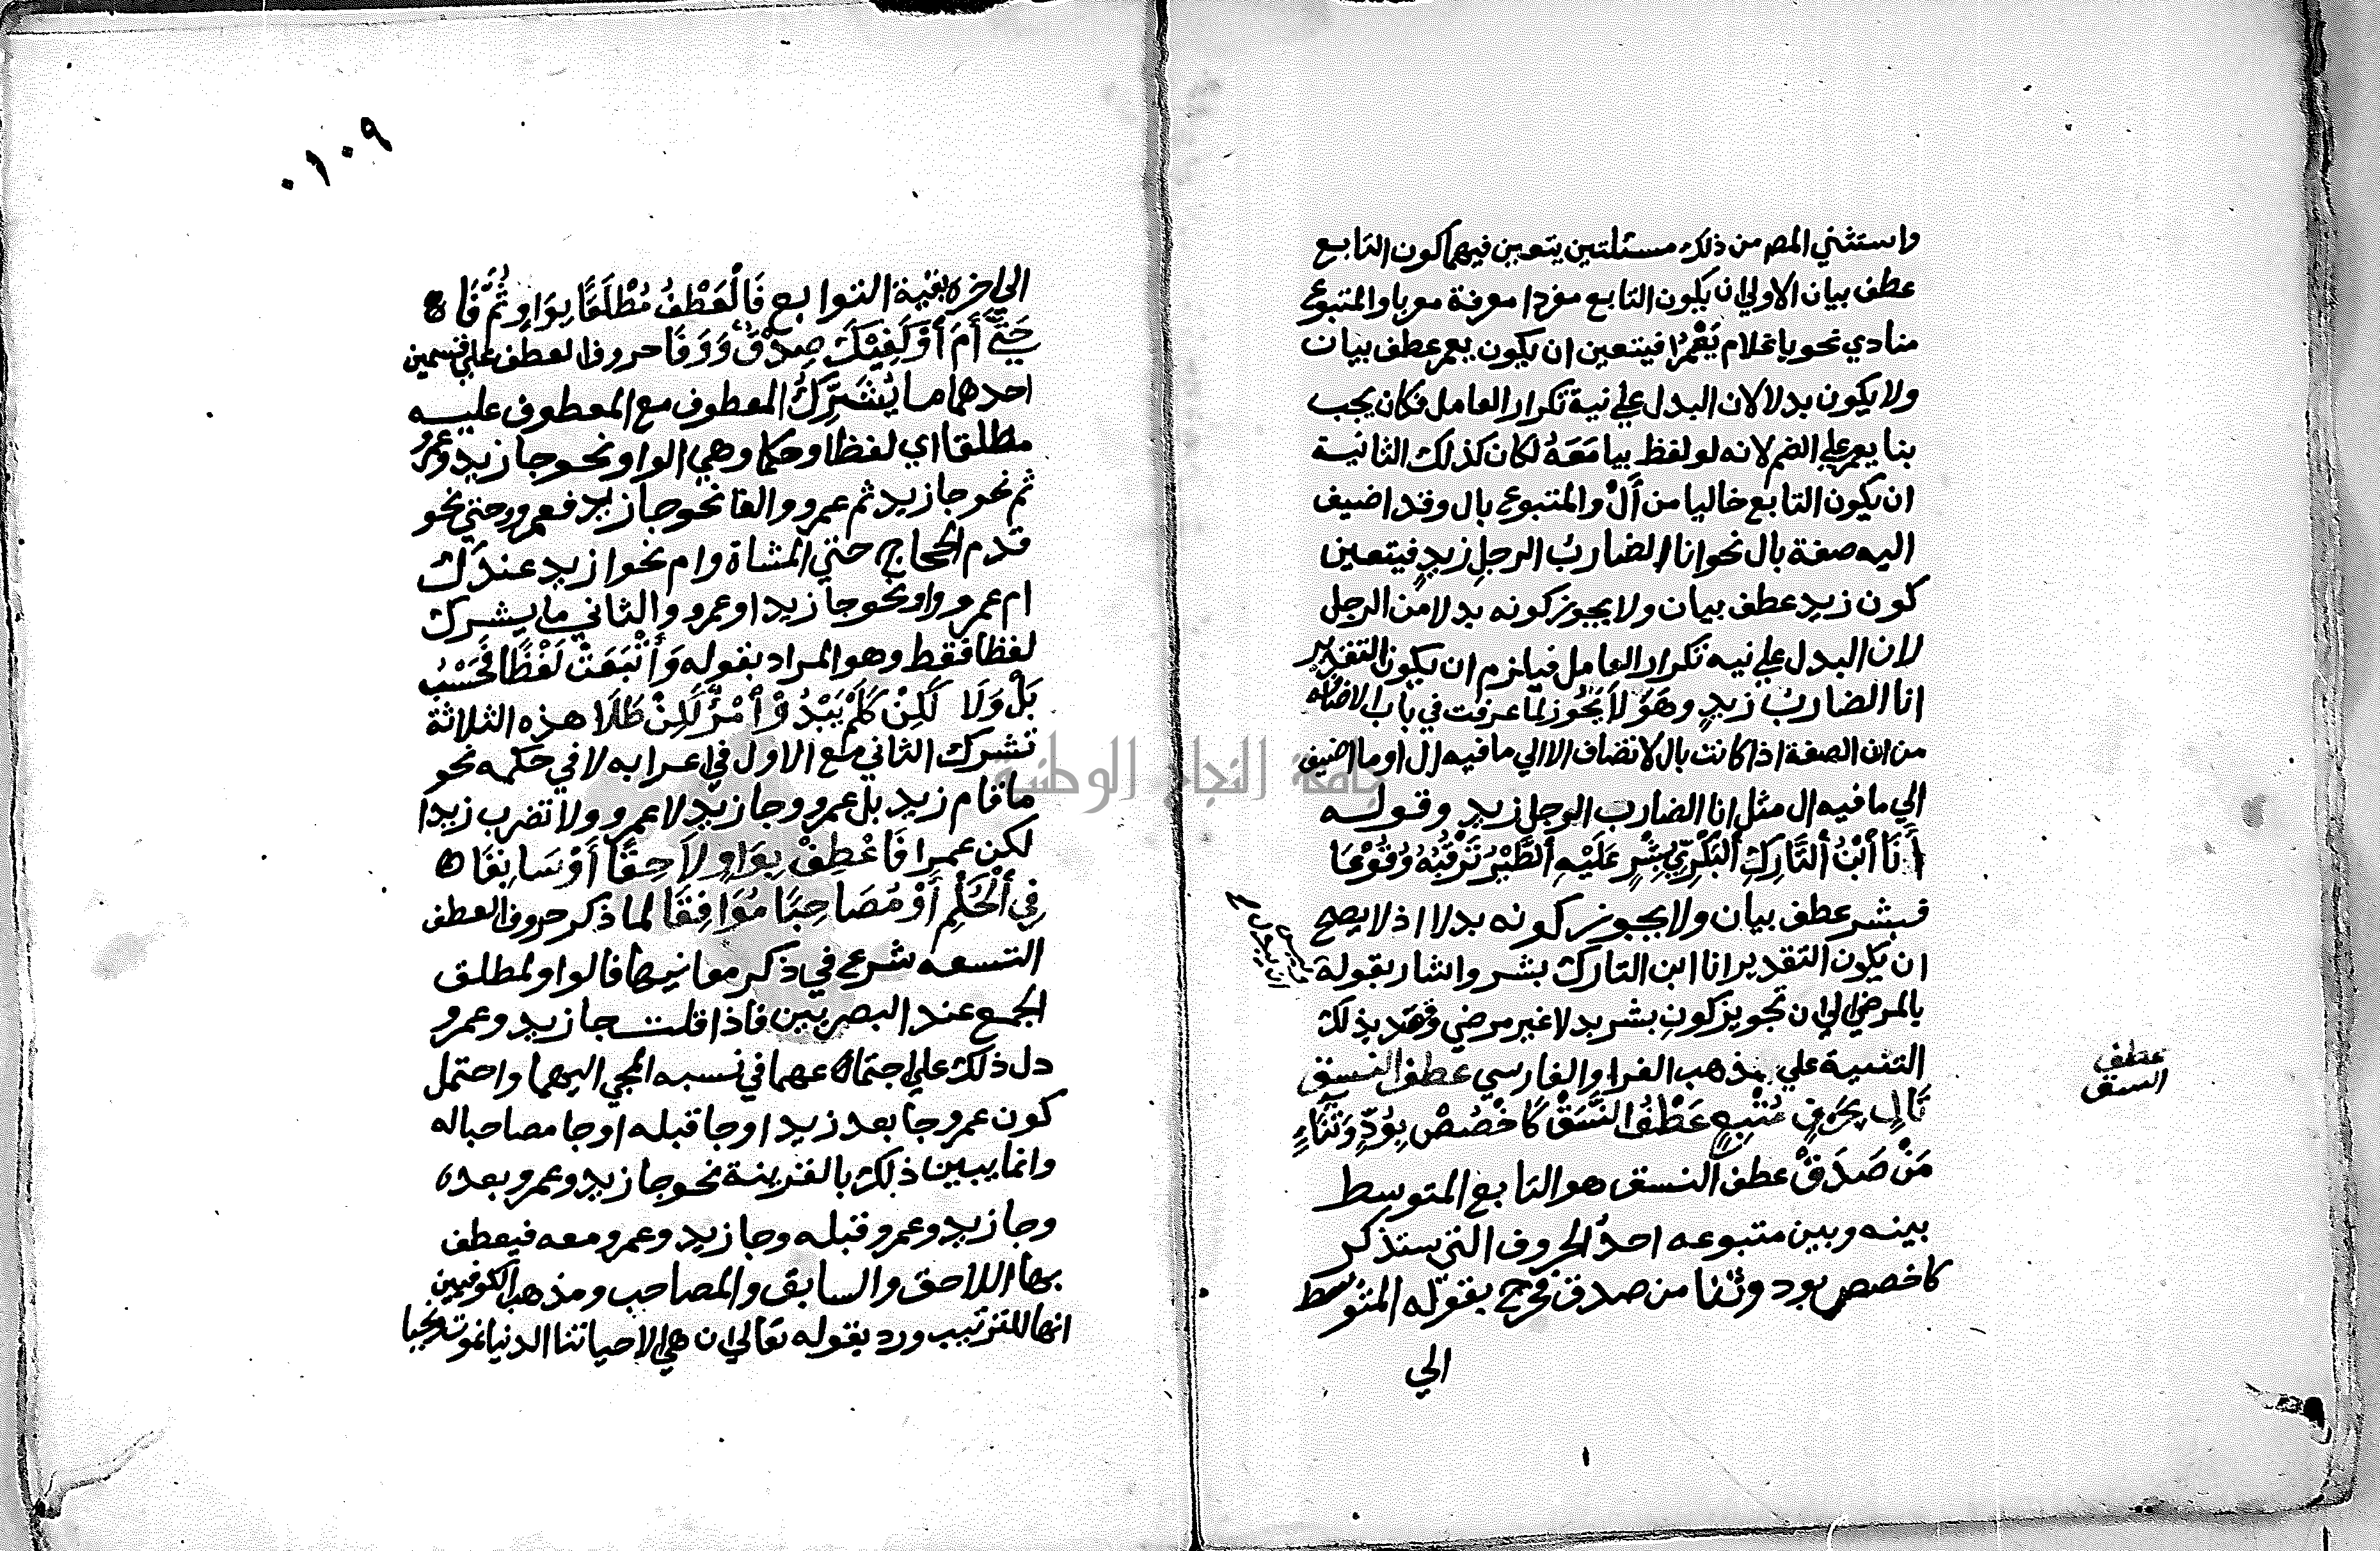 واستثني المص من ذلك مسئلتين يتعين فيهما كون التابع
عطف بيان الاولي ان يكون التابع مفردا معرفة معربا والمتبوع
منادي نحو يا غلام يَعْمُرَا فيتعين ان يكون يعمر عطف بيان
ولا يكون بدلا لان البدل علي نية تكرار العامل فكان يجب
بنا يعمر علي الضم لانه لو لفظ بيا مَعَهُ لكان كذلك الثانية
ان يكون التابع خاليا من أَلْ والمتبوع بال وقد اضيف
اليه صفة بال نحو انا الضاربُ الرجلِ زيدٍ فيتعين
كون زيد عطف بيان ولا يجوز كونه بدلا من الرجل
لان البدل علي نيه تكرار العامل فيلزم ان يكون التقدير
انا الضاربُ زيدٍ وهَوَ لاَ يَجُوز لِمَا عرفت في باب الاضافه
من ان الصفة اذا كانت بال لا تضاف الا الي ما فيه ال او ما اضيف
الي ما فيه ال مثل انا الضارب الرجل زيد وقوله
أَنَا أبْنُ ألتَّارِكِ ألبَكْرِيِّ بِشْرٍ عَلَيْهِ ألطَّيْرُ تَرْقُبُهُ وُقُوْعَا
فبشر عطف بيان ولا يجوز كونه بدلا اذ لا يصح
ان يكون التقدير انا ابن التارك بشر واشار بقوله
بالمرضي الي ان تجويز كون بشر بدلا غير مرضي وقصد بذلك
التنبيه علي مذهب الفرا والفارسي عطف النسق
عطف
النسق
تَالٍ بِحَرْفٍ مُتْبِعٍ عَطْفُ النَّسَقْ كَاخْصُصْ بِوُدٍّ وَثَنَاءٍ
مَنْ صَدَقْ عطف النسق هو التابع المتوسط
بينه وبين متبوعه احدُ الحروف التي ستذكر
كاخصص بود وثنا من صدق فخرج بقوله المتوسط
الي
٠١٠٩
الي اخره بقية التوابع فَالْعَطْفُ مُطْلَقًا بِوَاوٍ ثُمَّ فَا
حَتَّي أَمَ أوْ كَفِيْكَ صِدْقٌ وَوَفَا حروف العطف علي قسمين
احدهما ما يُشَرِّكُ المعطوف مع المعطوف عليه
مطلقا اي لفظا وحكما وهي الواو نحو جا زيد وعمرو
ثم نحو جا زيد ثم عمرو والفا نحو جا زيد فعمرو وحتي نحو
قدم الحجاج حتي المشاة وام نحو ازيد عندك
ام عمرو واو نحو جا زيد او عمرو والثاني ما يشرك
لفظا فقط وهو المراد بقوله وَأَتْبَعَتْ لَفْظًا فَحَسْبُ
بَلْ وَلَا لَكِنْ كَلَمْ يَبْدُ ؤْ أمْرُؤٌ لَكِنْ طَلَا هذه الثلاثة
تشرك الثاني مع الاول في اعرابه لا في حكمه نحو
ما قام زيد بل عمرو وجا زيد لا عمرو ولا تضرب زيدا
لكن عمرا فَاعْطِفْ بِوَاوٍ لاَحِقًا أَوْ سَابِقَا
فِي ألْحُكْمِ أَوْ مُصَاحِبًا مُوَافِقَا لما ذكر حروف العطف
التسعه شرع في ذكر معانيها فالواو لمطلق
الجمع عند البصريين فاذا قلت جا زيد وعمرو
دل ذلك علي اجتماعهما في نسبه المجي اليهما واحتمل
كون عمرو جا بعد زيد او جا قبله او جا مصاحبا له
وانما يبين ذلك بالقرينة نحو جا زيد وعمرو بعده
وجا زيد وعمرو قبله وجا زيد وعمرو معه فيعطف
بها اللاحق والسابق والمصاحب ومذهب الكوفيين
انها للترتيب ورد بقوله تعالي ان هي الا حياتنا الدنيا نموت ونحيا
جامعة النجاح الوطنية